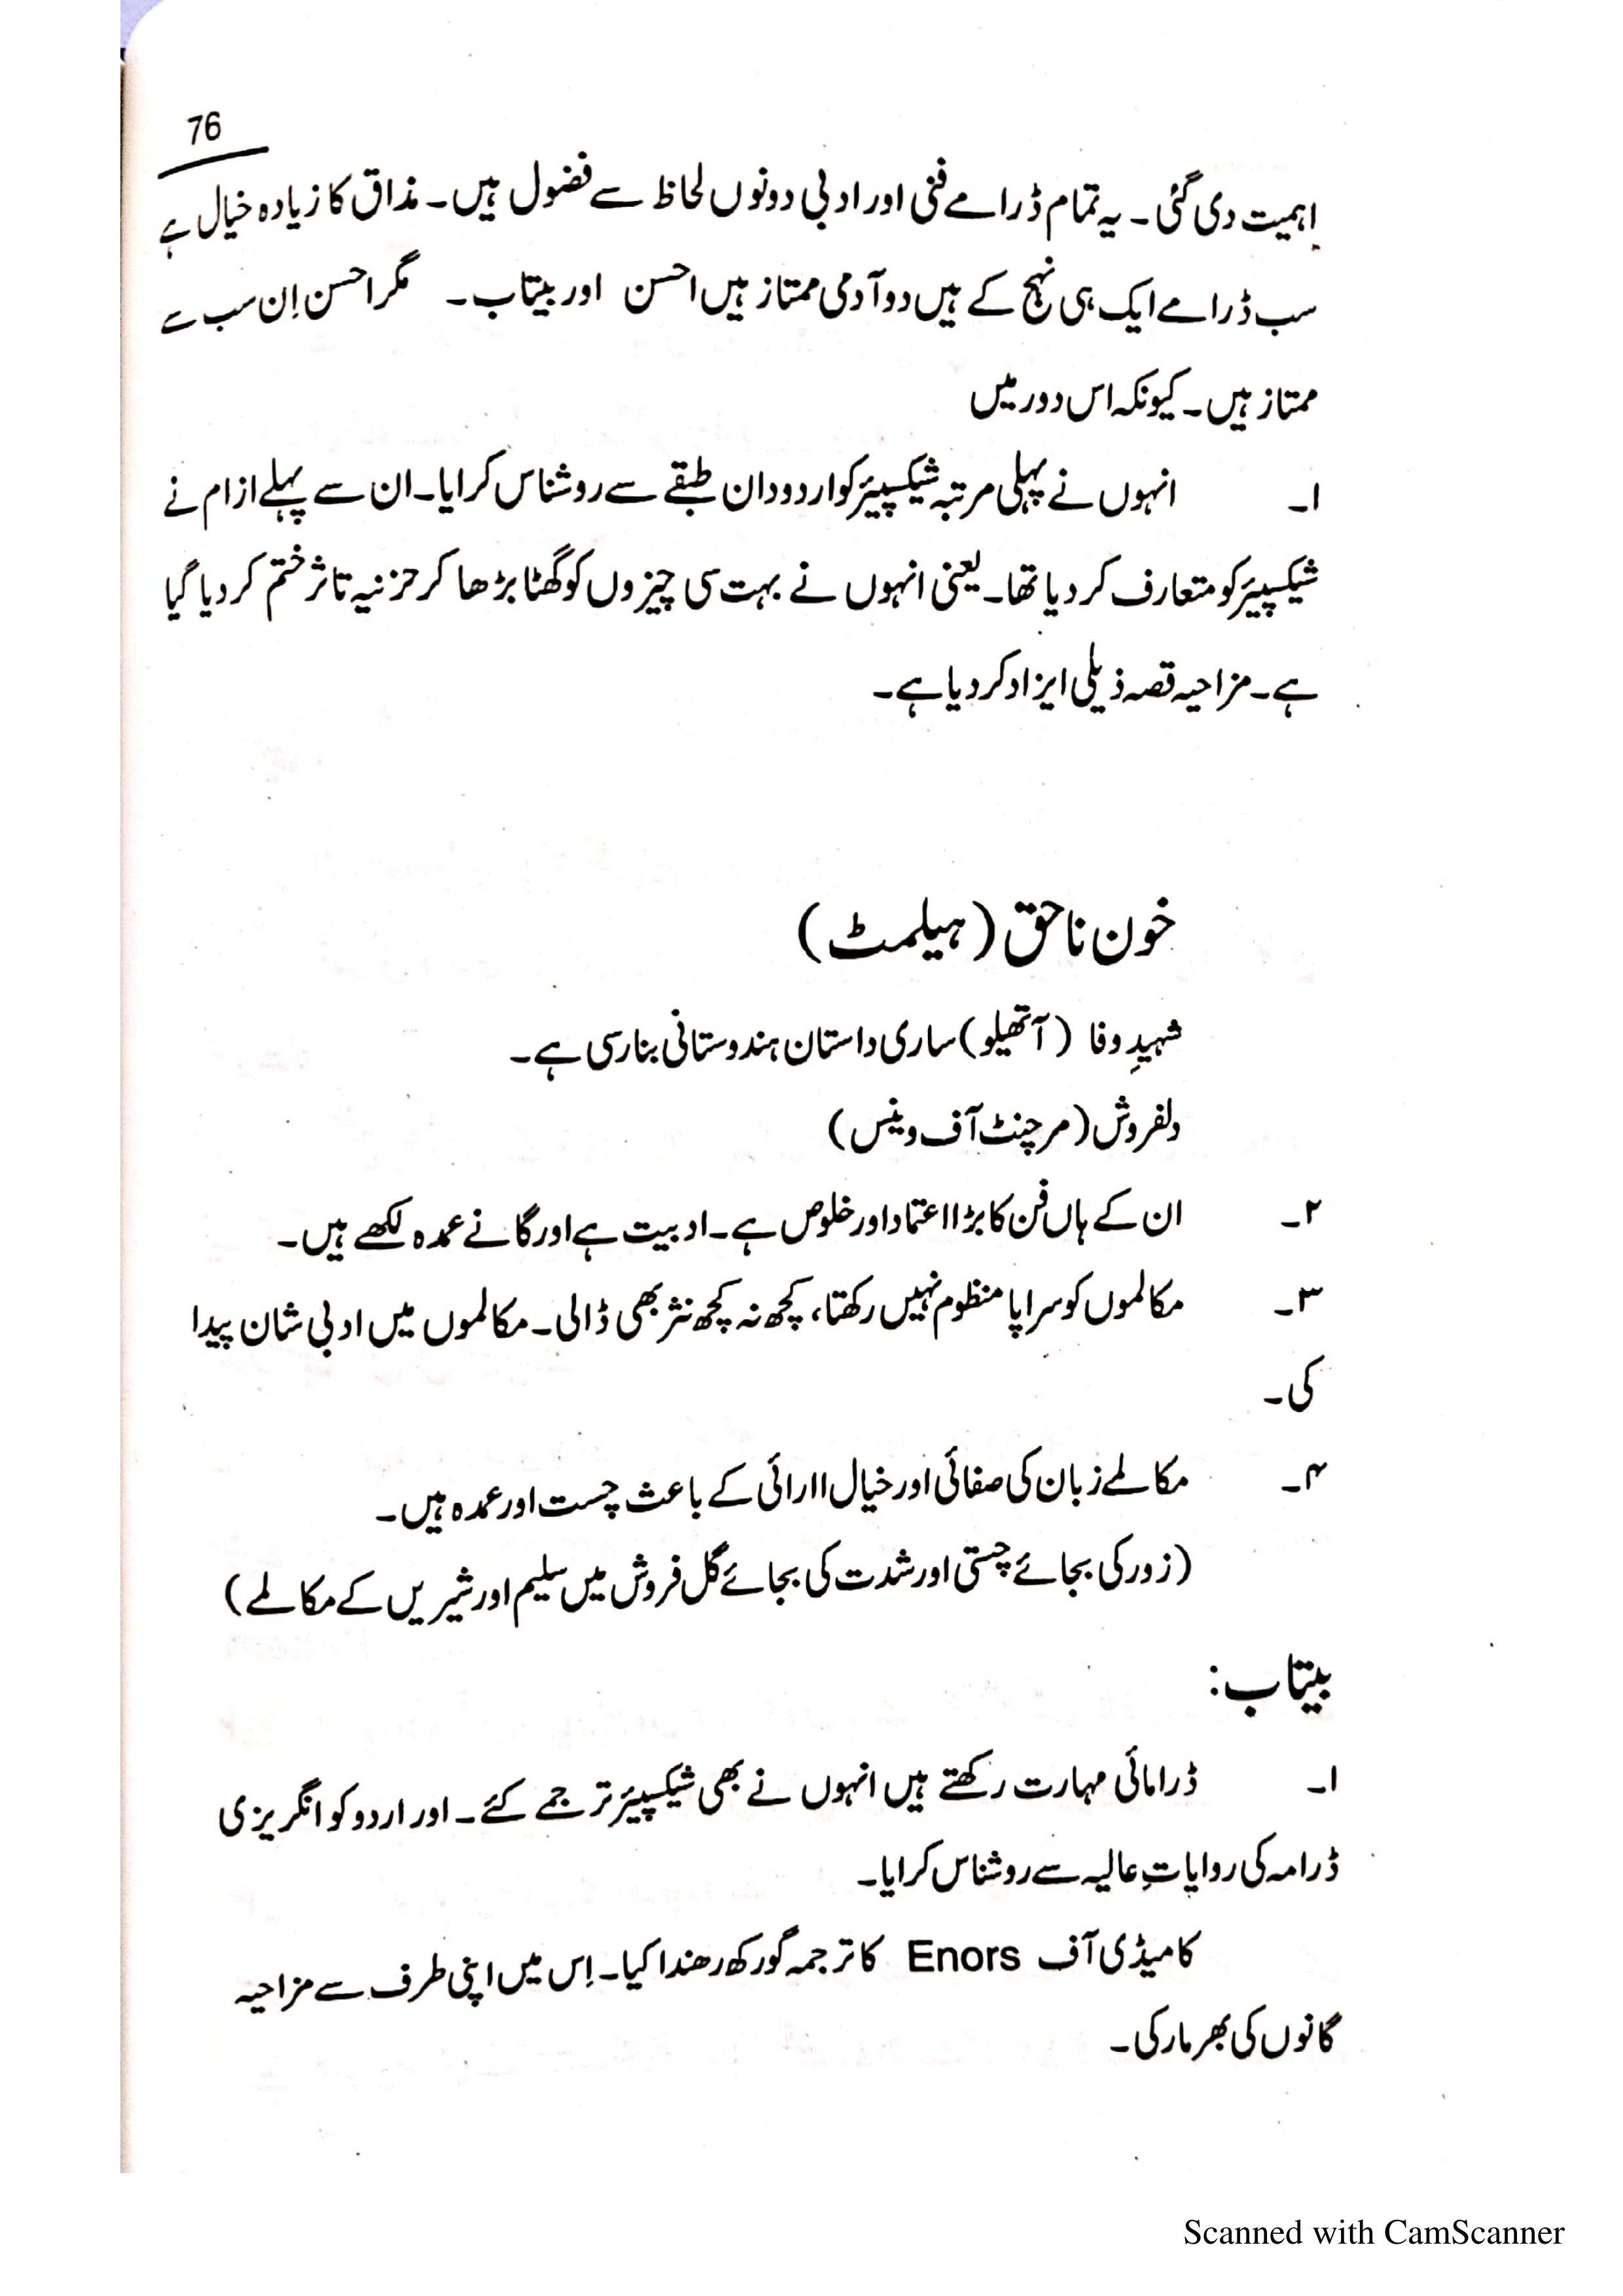 76
اہمیت دی گئی ۔ یہ تمام ڈرامے فنی اور ادبی دونوں لحاظ سے فضول ہیں۔ مذاق کا زیادہ خیال ہے
سب ڈرامے ایک ہی نہج کے ہیں دو آدمی ممتاز ہیں احسن اور بیتاب۔ مگر احسن اِن سب سے
ممتاز ہیں۔ کیونکہ اس دور میں
۱۔ انہوں نے پہلی مرتبہ شیکسپیئر کو اردو دان طبقے سے روشناس کرایا۔ ان سے پہلے ازام نے
شیکسپیئر کو متعارف کر دیا تھا۔ یعنی انہوں نے بہت سی چیزوں کو گھٹا بڑھا کر حزنیہ تاثر ختم کر دیا گیا
ہے۔ مزاحیہ قصہ ذیلی ایزاد کر دیا ہے۔
خون ناحق (ہیلمٹ)
شہیدِ وفا (آتھیلو) ساری داستان ہندوستانی بنارسی ہے۔
دلفروش (مرچنٹ آف وینس)
۲۔ ان کے ہاں فن کا بڑا اعتماد اور خلوص ہے۔ ادبیت ہے اور گانے عمدہ لکھے ہیں۔
۳۔ مکالموں کو سراپا منظوم نہیں رکھتا، کچھ نہ کچھ نثر بھی ڈالی۔ مکالموں میں ادبی شان پیدا
کی۔
۴۔ مکالمے زبان کی صفائی اور خیال اارائی کے باعث چست اور عمدہ ہیں۔
(زور کی بجائے چستی اور شدت کی بجائے گل فروش میں سلیم اور شیریں کے مکالمے)
بیتاب:
۱۔ ڈرامائی مہارت رکھتے ہیں انہوں نے بھی شیکسپیئر ترجمے کئے۔ اور اردو کو انگریزی
ڈرامہ کی روایاتِ عالیہ سے روشناس کرایا۔
کامیڈی آف Enors کا ترجمہ گورکھ رھندا کیا۔ اِس میں اپنی طرف سے مزاحیہ
گانوں کی بھر مار کی۔
Scanned with CamScanner